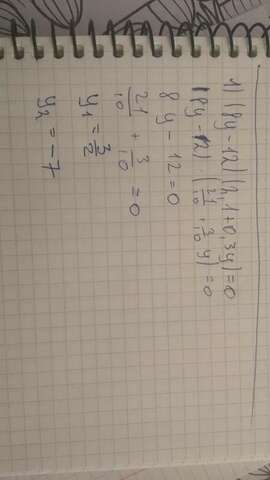 1) (8y - 12)(2,1 + 0,3y) = 0
(8y - 12) · (21/10 + 3/10 y) = 0
8y - 12 = 0
21/10 + 3/10 = 0
y₁ = 3/2
y₂ = -7